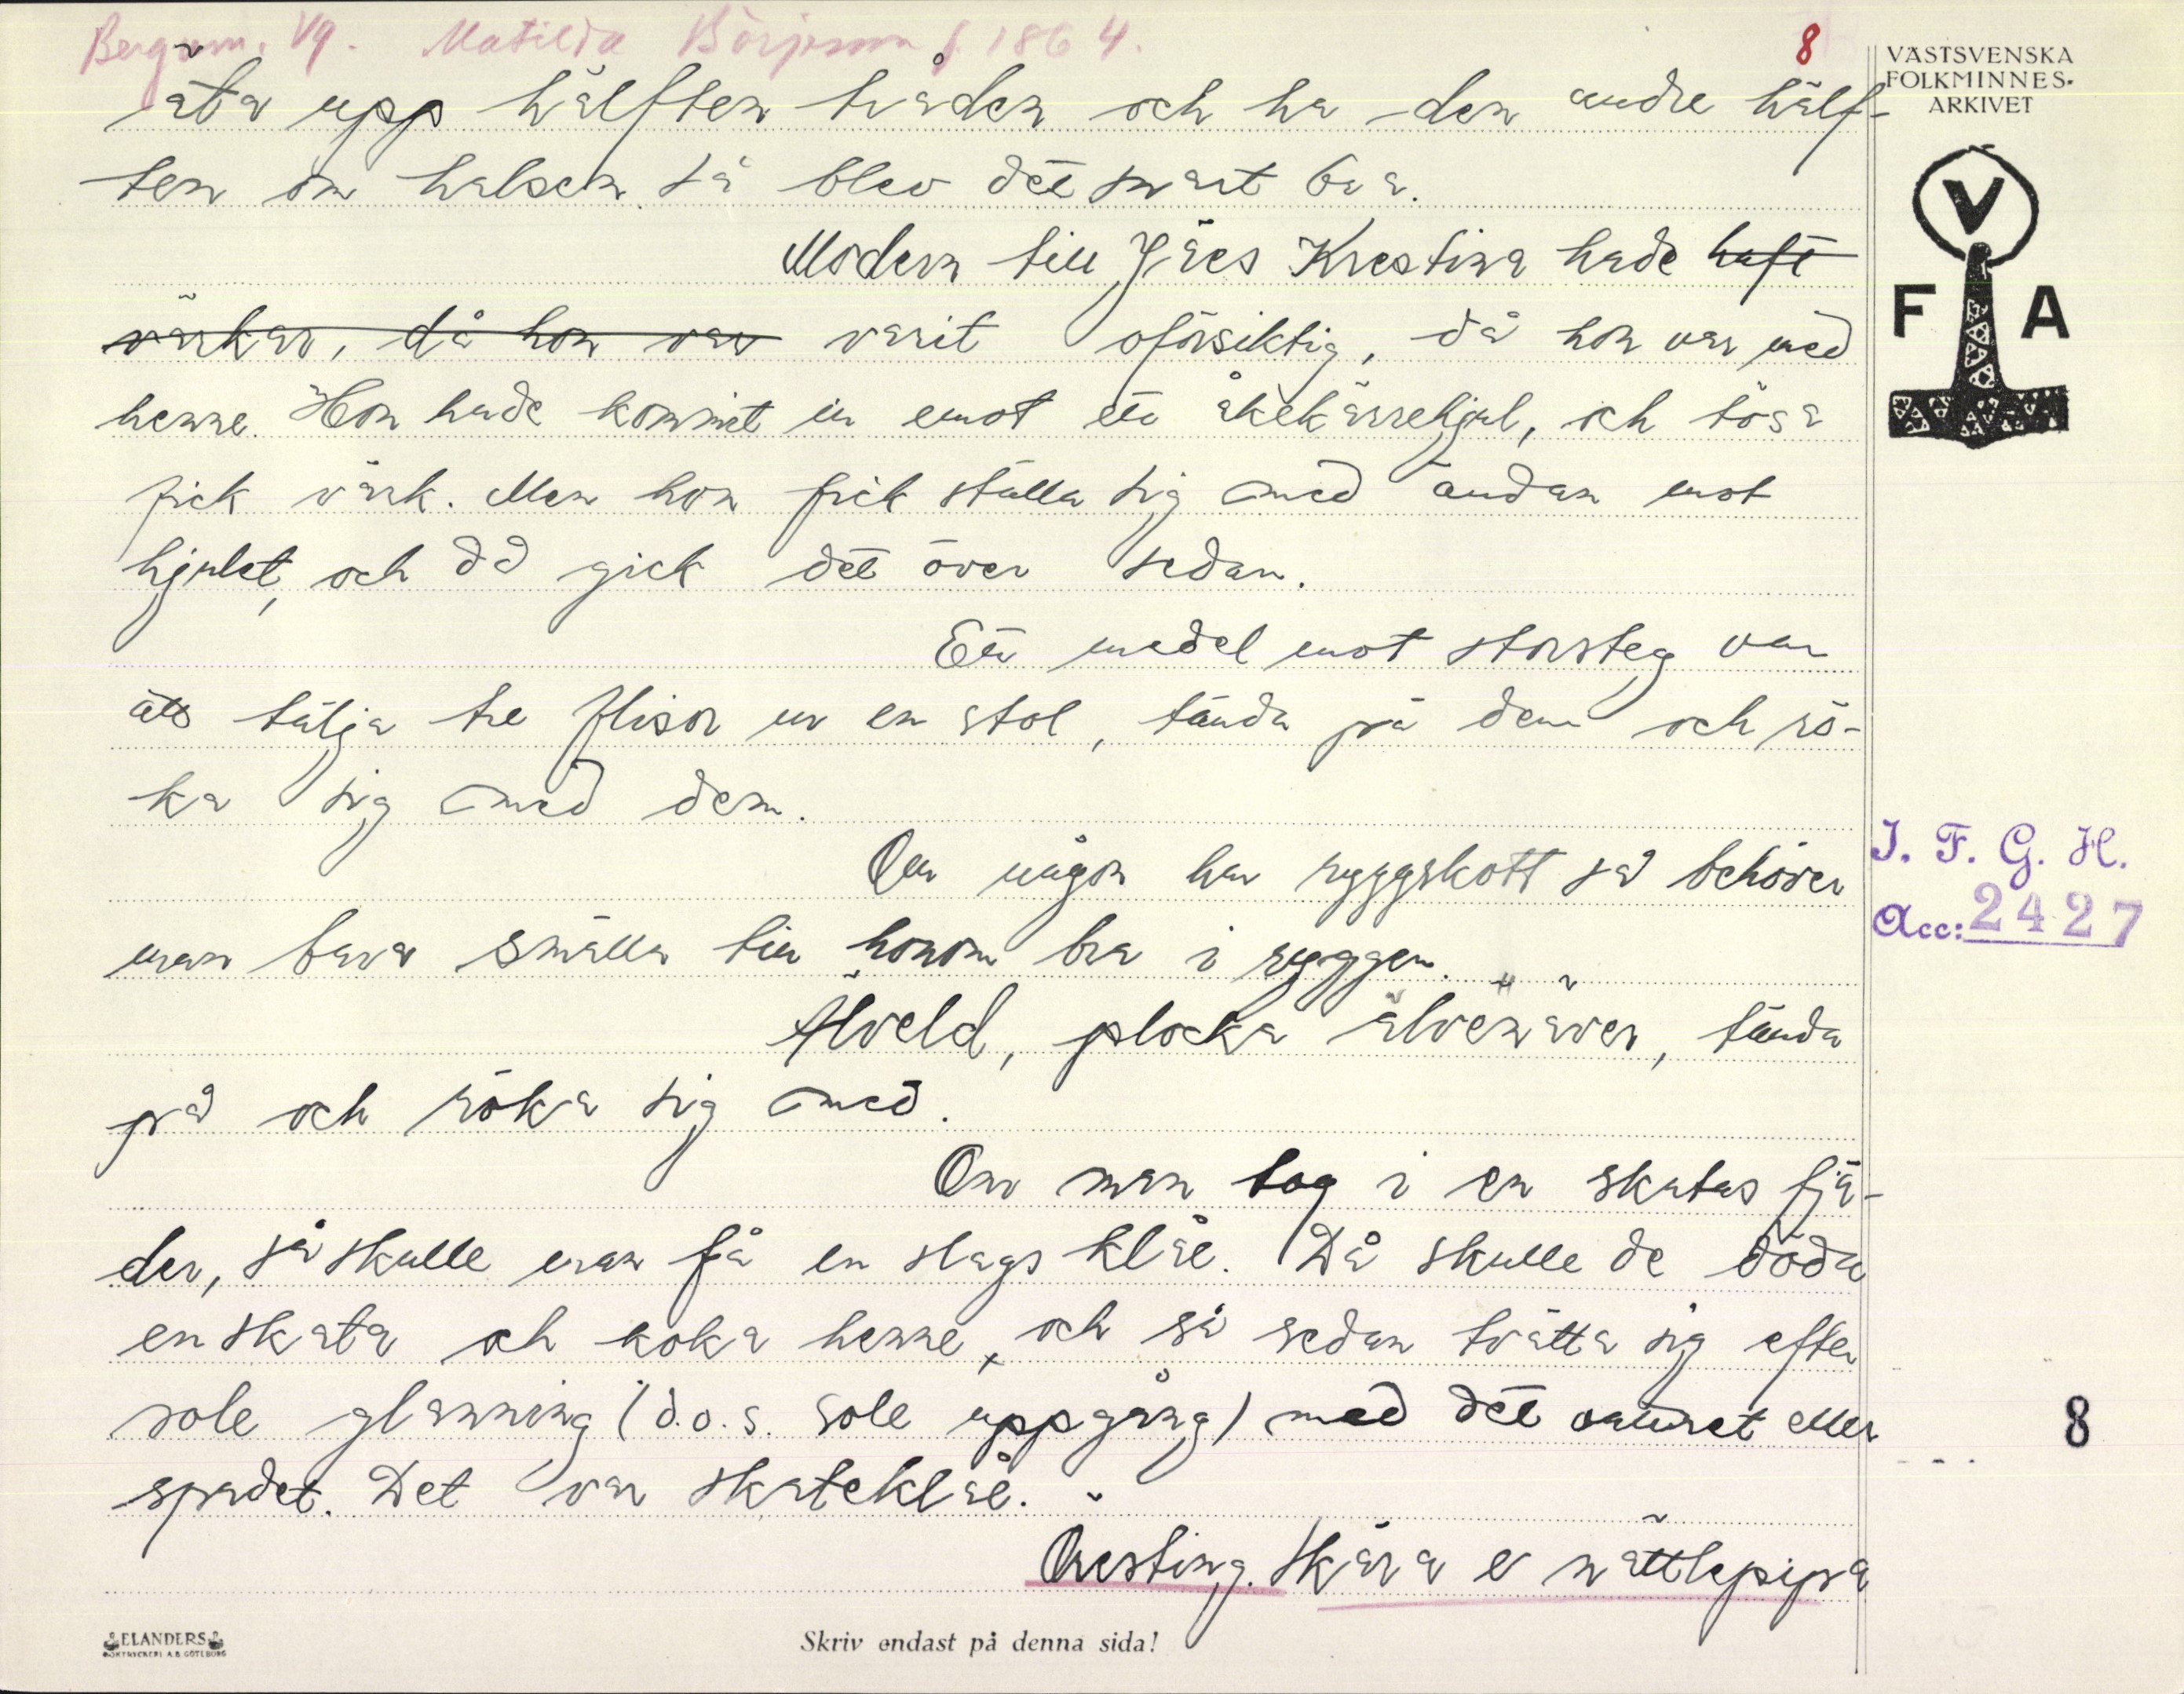 Bergum, Vg. Matilda Börjesson f. 1864.
8
VÄSTSVENSKA
FOLKMINNES-
ARKIVET
V
F A
äta upp hälften tråden och ha den andre hälf-
ten om halsen så blev det snart bra.
Modern till Jäes Krestina hade haft
värkar, då hon var varit oförsiktig, då hon var med
henne. Hon hade kommit in emot ett åkekärrehjul, och tösa
fick värk. Men hon fick ställa sig med ändan mot
hjulet, och då gick det över sedan.
Ett medel mot storsteg var
att tälja tre flisor ur en stol, tända på dem och rö-
ka sig med dem.
Om någon har ryggskott så behöver
man bara smälla till honom bra i ryggen.
Älveld, plocka älvenäver, tända
på och röka sig med.
Om man tog i en skatas fjä-
der, så skulle man få en slags klåe. Då skulle de döda
en skata och koka henne, och så sedan tvätta sig efter
sole glanning (d.v.s. sole uppgång) med det vattnet eller
spadet. Det var skateklåe.
Oresting. Skära e nättlepipa
I. F. G. H.
Acc: 2427
8
ELANDERS
BOKTRYCKERI A.B. GÖTEBORG
Skriv endast på denna sida!